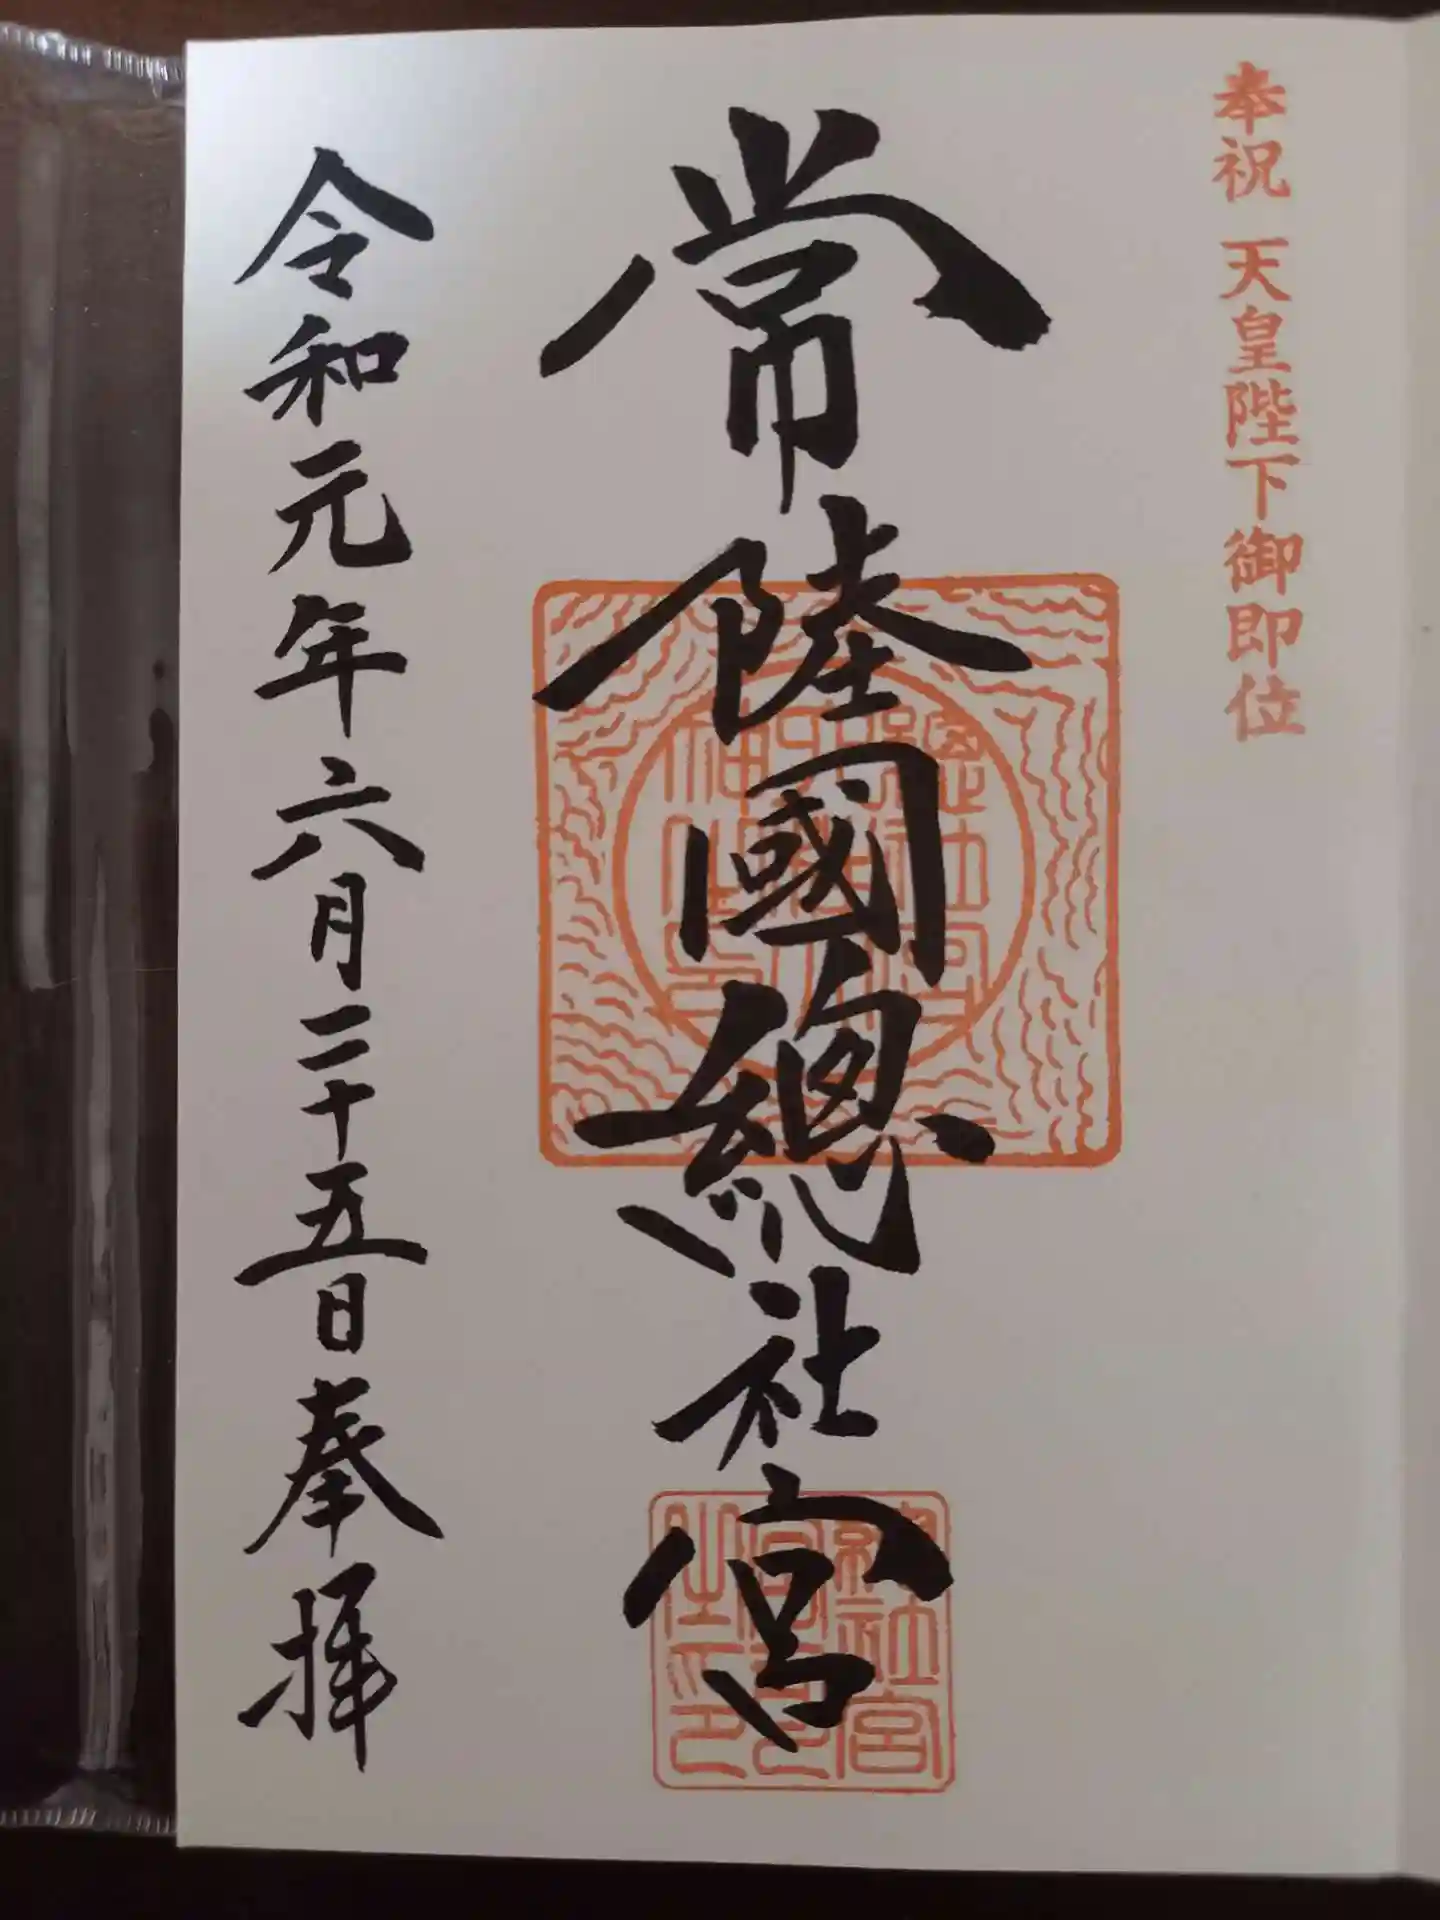 奉祝 天皇陛下御即位
常陸國總社宮
令和元年六月二十五日奉拝
總社宮